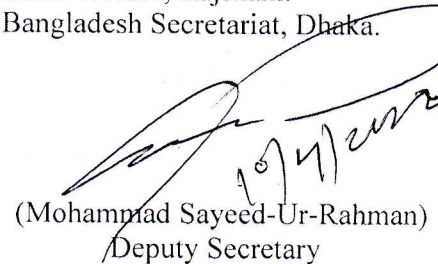 Bangladesh Secretariat, Dhaka.
(Mohammad Sayeed-Ur-Rahman)
Deputy Secretary